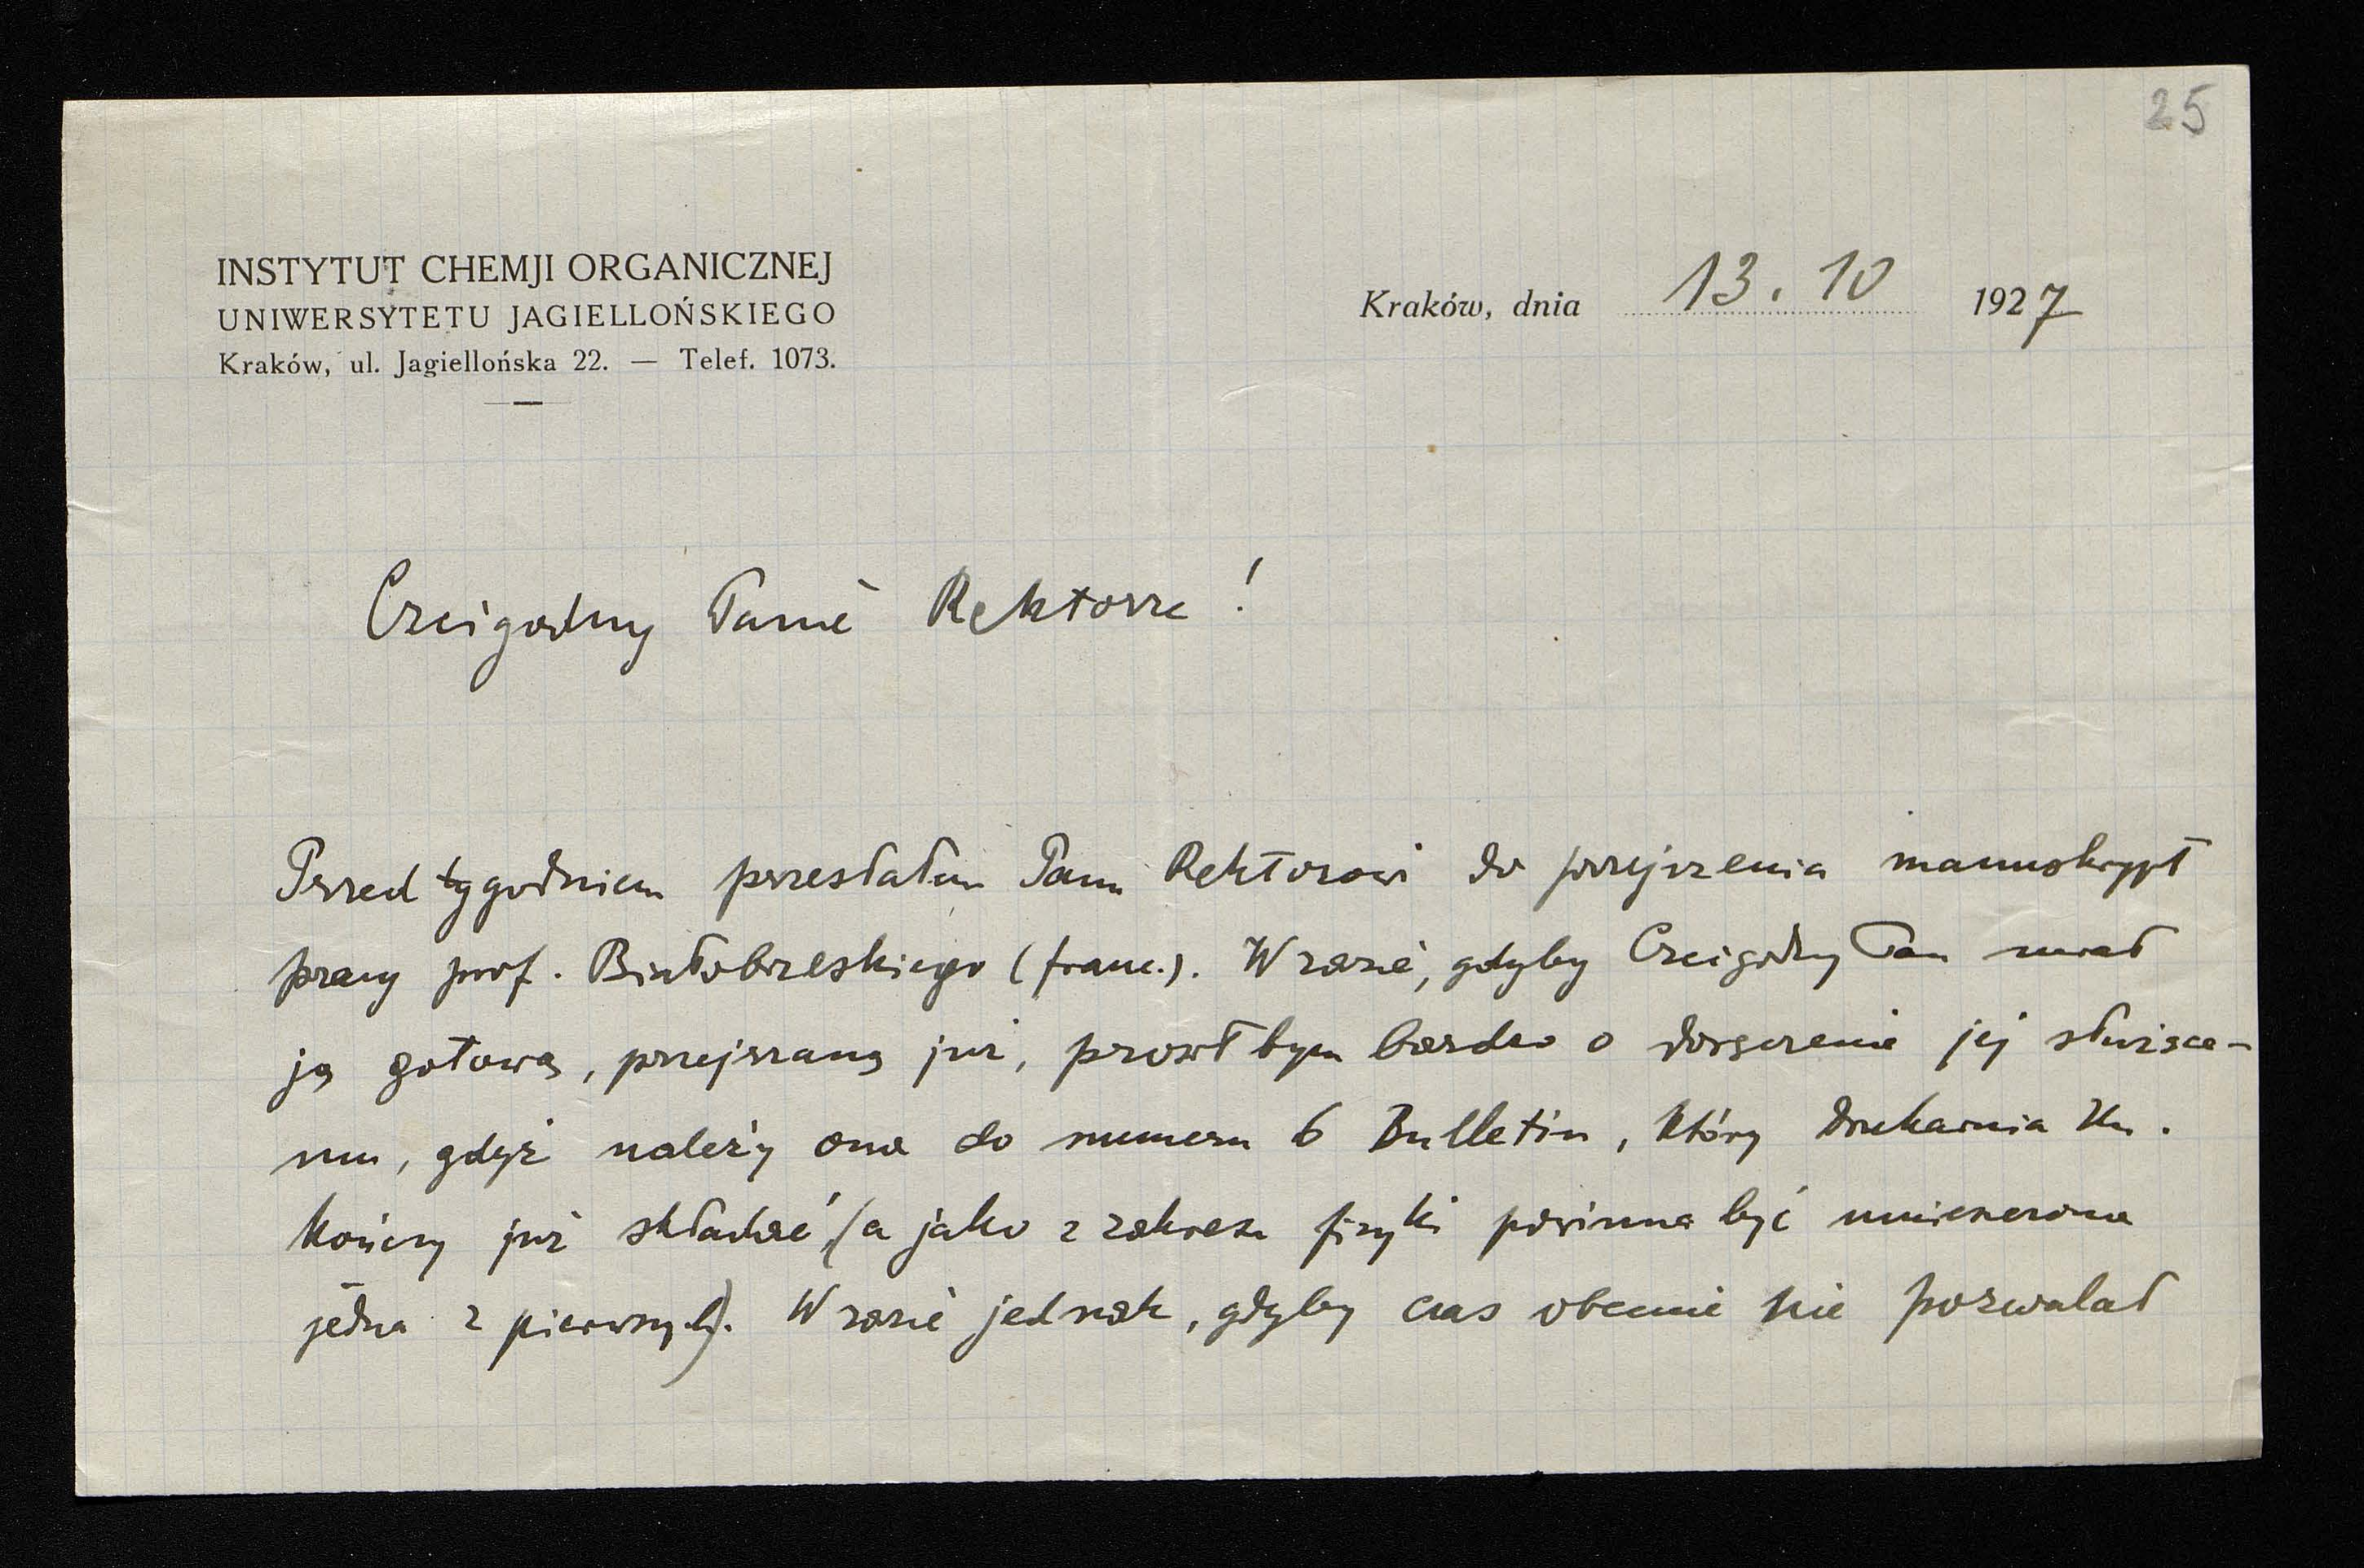 25
INSTYTUT CHEMJI ORGANICZNEJ
UNIWERSYTETU JAGIELLOŃSKIEGO
Kraków, ul. Jagiellońska 22. — Telef. 1073.
Kraków, dnia 13. 10 1927
Czcigodny Panie Rektorze!
Przed tygodniem przesłałem Panu Rektorowi do przejrzenia manuskrypt
pracy prof. Białobrzeskiego (franc.). W razie, gdyby Czcigodny Pan miał
ją gotową, przejrzaną już, prosiłbym bardzo o doręczenie jej służące-
mu, gdyż należy ona do numeru 6 Bulletin, który Drukarnia Un.
kończy już składać (a jako z zakresu fizyki powinna być umieszczona
jedna z pierwszych). W razie jednak, gdyby czas obecnie nie pozwalał